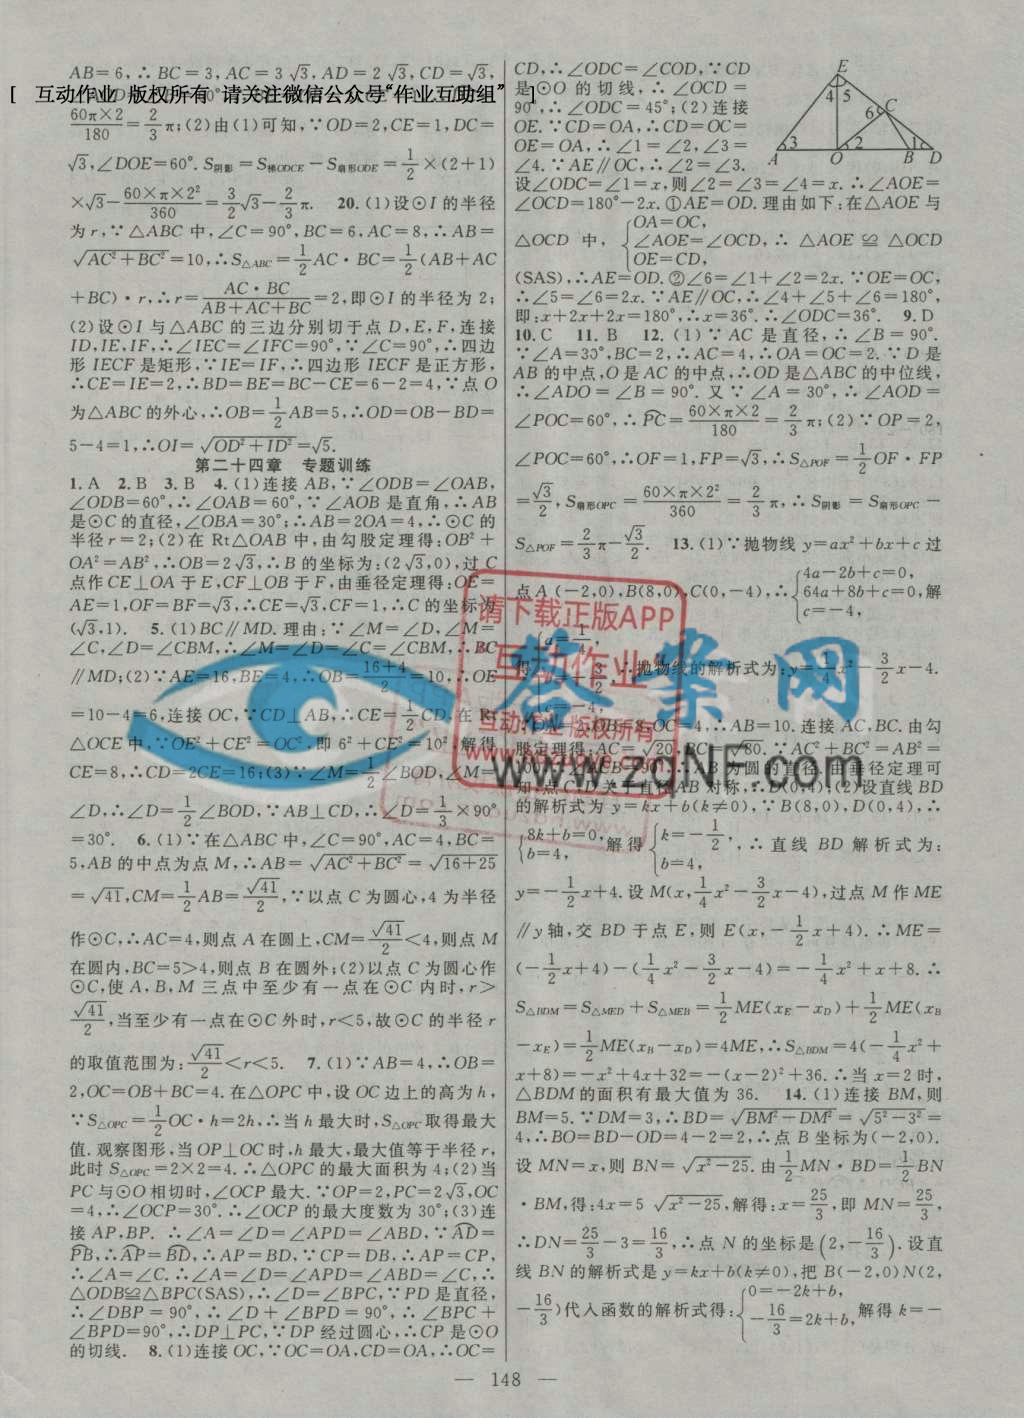 AB=6,∴BC=3,AC=3√3,AD=2√3,CD=√3,
[ 互动作业 版权所有 请关注微信公众号“作业互助组” ]
60π×2/180=2/3π;(2)由(1)可知,∵OD=2,CE=1,DC=
√3,∠DOE=60°.S阴影=S梯ODCE-S扇形ODE=1/2×(2+1)
×√3-60×π×2²/360=3/2√3-2/3π. 20.(1)设⊙I的半径
为r,∵△ABC中,∠C=90°,BC=6,AC=8,∴AB=
√(AC²+BC²)=10,∴S△ABC=1/2AC·BC=1/2(AB+AC
+BC)·r,∴r=AC·BC/(AB+AC+BC)=2,即⊙I的半径为2;
(2)设⊙I与△ABC的三边分别切于点D,E,F,连接
ID,IE,IF,∴∠IEC=∠IFC=90°,∵∠C=90°,∴四边
形IECF是矩形,∵IE=IF,∴四边形IECF是正方形,
∴CE=IE=2,∴BD=BE=BC-CE=6-2=4,∵点O
为△ABC的外心,∴OB=1/2AB=5,∴OD=OB-BD=
5-4=1,∴OI=√(OD²+ID²)=√5.
第二十四章 专题训练
1.A 2.B 3.B 4.(1)连接AB,∵∠ODB=∠OAB,
∠ODB=60°,∴∠OAB=60°,∵∠AOB是直角,∴AB
是⊙C的直径,∠OBA=30°;∴AB=2OA=4,∴⊙C的
半径r=2;(2)在Rt△OAB中,由勾股定理得:OB²+
OA²=AB²,∴OB=2√3,∴B的坐标为:(2√3,0),过C
点作CE⊥OA于E,CF⊥OB于F,由垂径定理得:OE=
AE=1,OF=BF=√3,∴CE=√3,CF=1,∴C的坐标为
(√3,1). 5.(1)BC∥MD.理由:∵∠M=∠D,∠M=
∠C,∠D=∠CBM,∴∠M=∠D=∠C=∠CBM,∴BC
∥MD;(2)∵AE=16,BE=4,∴OB=(16+4)/2=10,∴OE
=10-4=6,连接OC,∵CD⊥AB,∴CE=1/2CD,在Rt
△OCE中,∵OE²+CE²=OC²,即6²+CE²=10²,解得
CE=8,∴CD=2CE=16;(3)∵∠M=1/2∠BOD,∠M=
∠D,∴∠D=1/2∠BOD,∵AB⊥CD,∴∠D=1/3×90°
=30°. 6.(1)∵在△ABC中,∠C=90°,AC=4,BC=
5,AB的中点为点M,∴AB=√(AC²+BC²)=√(16+25)
=√41,CM=1/2AB=√41/2,∵以点C为圆心,4为半径
作⊙C,∴AC=4,则点A在圆上,CM=√41/2<4,则点M
在圆内,BC=5>4,则点B在圆外;(2)以点C为圆心作
⊙C,使A,B,M三点中至少有一点在⊙C内时,r>
√41/2,当至少有一点在⊙C外时,r<5,故⊙C的半径r
的取值范围为:√41/2<r<5. 7.(1)∵AB=4,∴OB=
2,OC=OB+BC=4.在△OPC中,设OC边上的高为h,
∵S△OPC=1/2OC·h=2h,∴当h最大时,S△OPC取得最大
值.观察图形,当OP⊥OC时,h最大,最大值等于半径r,
此时S△OPC=2×2=4.∴△OPC的最大面积为4;(2)当
PC与⊙O相切时,∠OCP最大.∵OP=2,PC=2√3,OC
=4,∴∠OCP=30°.∴∠OCP的最大度数为30°;(3)连
接AP,BP. ∴∠A=∠D=∠APD=∠ABD,∵AD=
PB,∴AP=BD,∴AP=BD,∵CP=DB,∴AP=CP,
∴∠A=∠C.∴∠A=∠D=∠APD=∠ABD=∠C,∴
△ODB≌△BPC(SAS),∴∠D=∠BPC,∵PD是直径,
∴∠DBP=90°,∴∠D+∠BPD=90°,∴∠BPC+
∠BPD=90°,∴DP⊥PC,∵DP经过圆心,∴CP是⊙O
的切线. 8.(1)连接OC,∵OC=OA,CD=OA,∴OC=
CD,∴∠ODC=∠COD,∵CD
是⊙O的切线,∴∠OCD=
90°,∴∠ODC=45°;(2)连接
OE.∵CD=OA,∴CD=OC=
OE=OA,∴∠1=∠2,∠3=
∠4.∵AE∥OC,∴∠2=∠3.
设∠ODC=∠1=x,则∠2=∠3=∠4=x.∴∠AOE=
∠OCD=180°-2x.①AE=OD.理由如下:在△AOE与
△OCD中,{OA=OC,∠AOE=∠OCD,OE=CD,∴△AOE≌△OCD
(SAS),∴AE=OD.②∠6=∠1+∠2=2x.∵OE=OC,
∴∠5=∠6=2x.∵AE∥OC,∴∠4+∠5+∠6=180°,
即:x+2x+2x=180°,∴x=36°.∴∠ODC=36°. 9.D
10.C 11.B 12.(1)∵AC是直径,∴∠B=90°.
∵∠A=30°,BC=2,∴AC=4,∴OA=OC=2.∵D是
AB的中点,O是AC的中点,∴OD是△ABC的中位线,
∴∠ADO=∠B=90°.又∵∠A=30°,∴∠AOD=
∠POC=60°,∴PC=60×π×2/180=2/3π;(2)∵OP=2,
∠POC=60°,∴OF=1,FP=√3,∴S△POF=1/2OF·FP
=√3/2,S扇形OPC=60×π×2²/360=2/3π,∴S阴影=S扇形OPC-
S△POF=2/3π-√3/2. 13.(1)∵抛物线y=ax²+bx+c过
点A(-2,0),B(8,0),C(0,-4),∴{4a-2b+c=0,64a+8b+c=0,c=-4,解
得{a=1/4,b=-3/2,c=-4,∴抛物线的解析式为:y=1/4x²-3/2x-4.
∵OA=2,OB=8,OC=4,∴AB=10.连接AC,BC.由勾
股定理得:AC=√20,BC=√80.∵AC²+BC²=AB²=
100,∴∠ACB=90°,∴AB为圆的直径.由垂径定理可
知,点C,D关于直径AB对称,∴D(0,4);(2)设直线BD
的解析式为y=kx+b(k≠0),∵B(8,0),D(0,4),∴
{8k+b=0,b=4,解得{k=-1/2,b=4,∴直线BD解析式为:
y=-1/2x+4.设M(x,1/4x²-3/2x-4),过点M作ME
∥y轴,交BD于点E,则E(x,-1/2x+4).∴ME=
(-1/2x+4)-(1/4x²-3/2x-4)=-1/4x²+x+8.∴
S△BDM=S△MED+S△MEB=1/2ME(xE-xD)+1/2ME(xB
-xE)=1/2ME(xB-xD)=4ME,∴S△BDM=4(-1/4x²+
x+8)=-x²+4x+32=-(x-2)²+36.∴当x=2时,
△BDM的面积有最大值为36. 14.(1)连接BM,则
BM=5.∵DM=3,∴BD=√(BM²-DM²)=√(5²-3²)=
4,∴BO=BD-OD=4-2=2,∴点B坐标为(-2,0).
设MN=x,则BN=√(x²-25).由1/2MN·BD=1/2BN
·BM,得:4x=5√(x²-25),解得:x=25/3,即MN=25/3,
∴DN=25/3-3=16/3,∴点N的坐标是(2,-16/3).设直
线BN的解析式是y=kx+b(k≠0),把B(-2,0)N(2,
-16/3)代入函数的解析式得:{0=-2k+b,-16/3=2k+b,解得k=-
E
4 5
6 C
3 2 1
A O B D
请下载正版APP
互动作业
互动作业 版权所有
答案网
www.zqNF.com
— 148 —